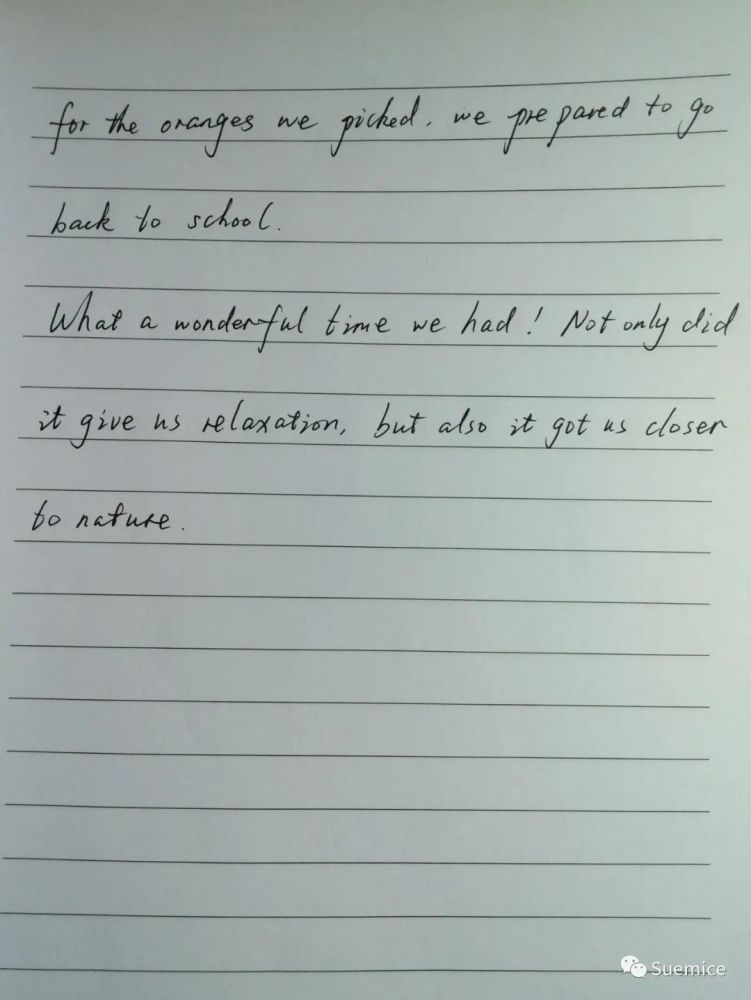 for the oranges we picked, we prepared to go
back to school.
What a wonderful time we had! Not only did
it give us relaxation, but also it got us closer
to nature.
Suemice